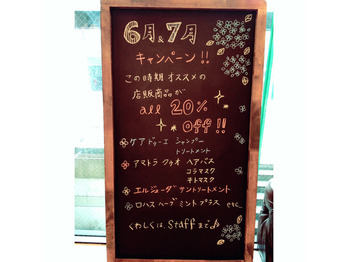 6月&7月
キャンペーン!!
この時期オススメの
店販商品が
all 20%
off!!
ケアトゥーエ シャンプー
トリートメント
アマトラ クゥオ ヘアバス
コラマスク
キトマスク
エルジューダ サントリートメント
ロハスヘーブ ミントプラス etc
くわしくは、staffまで♪